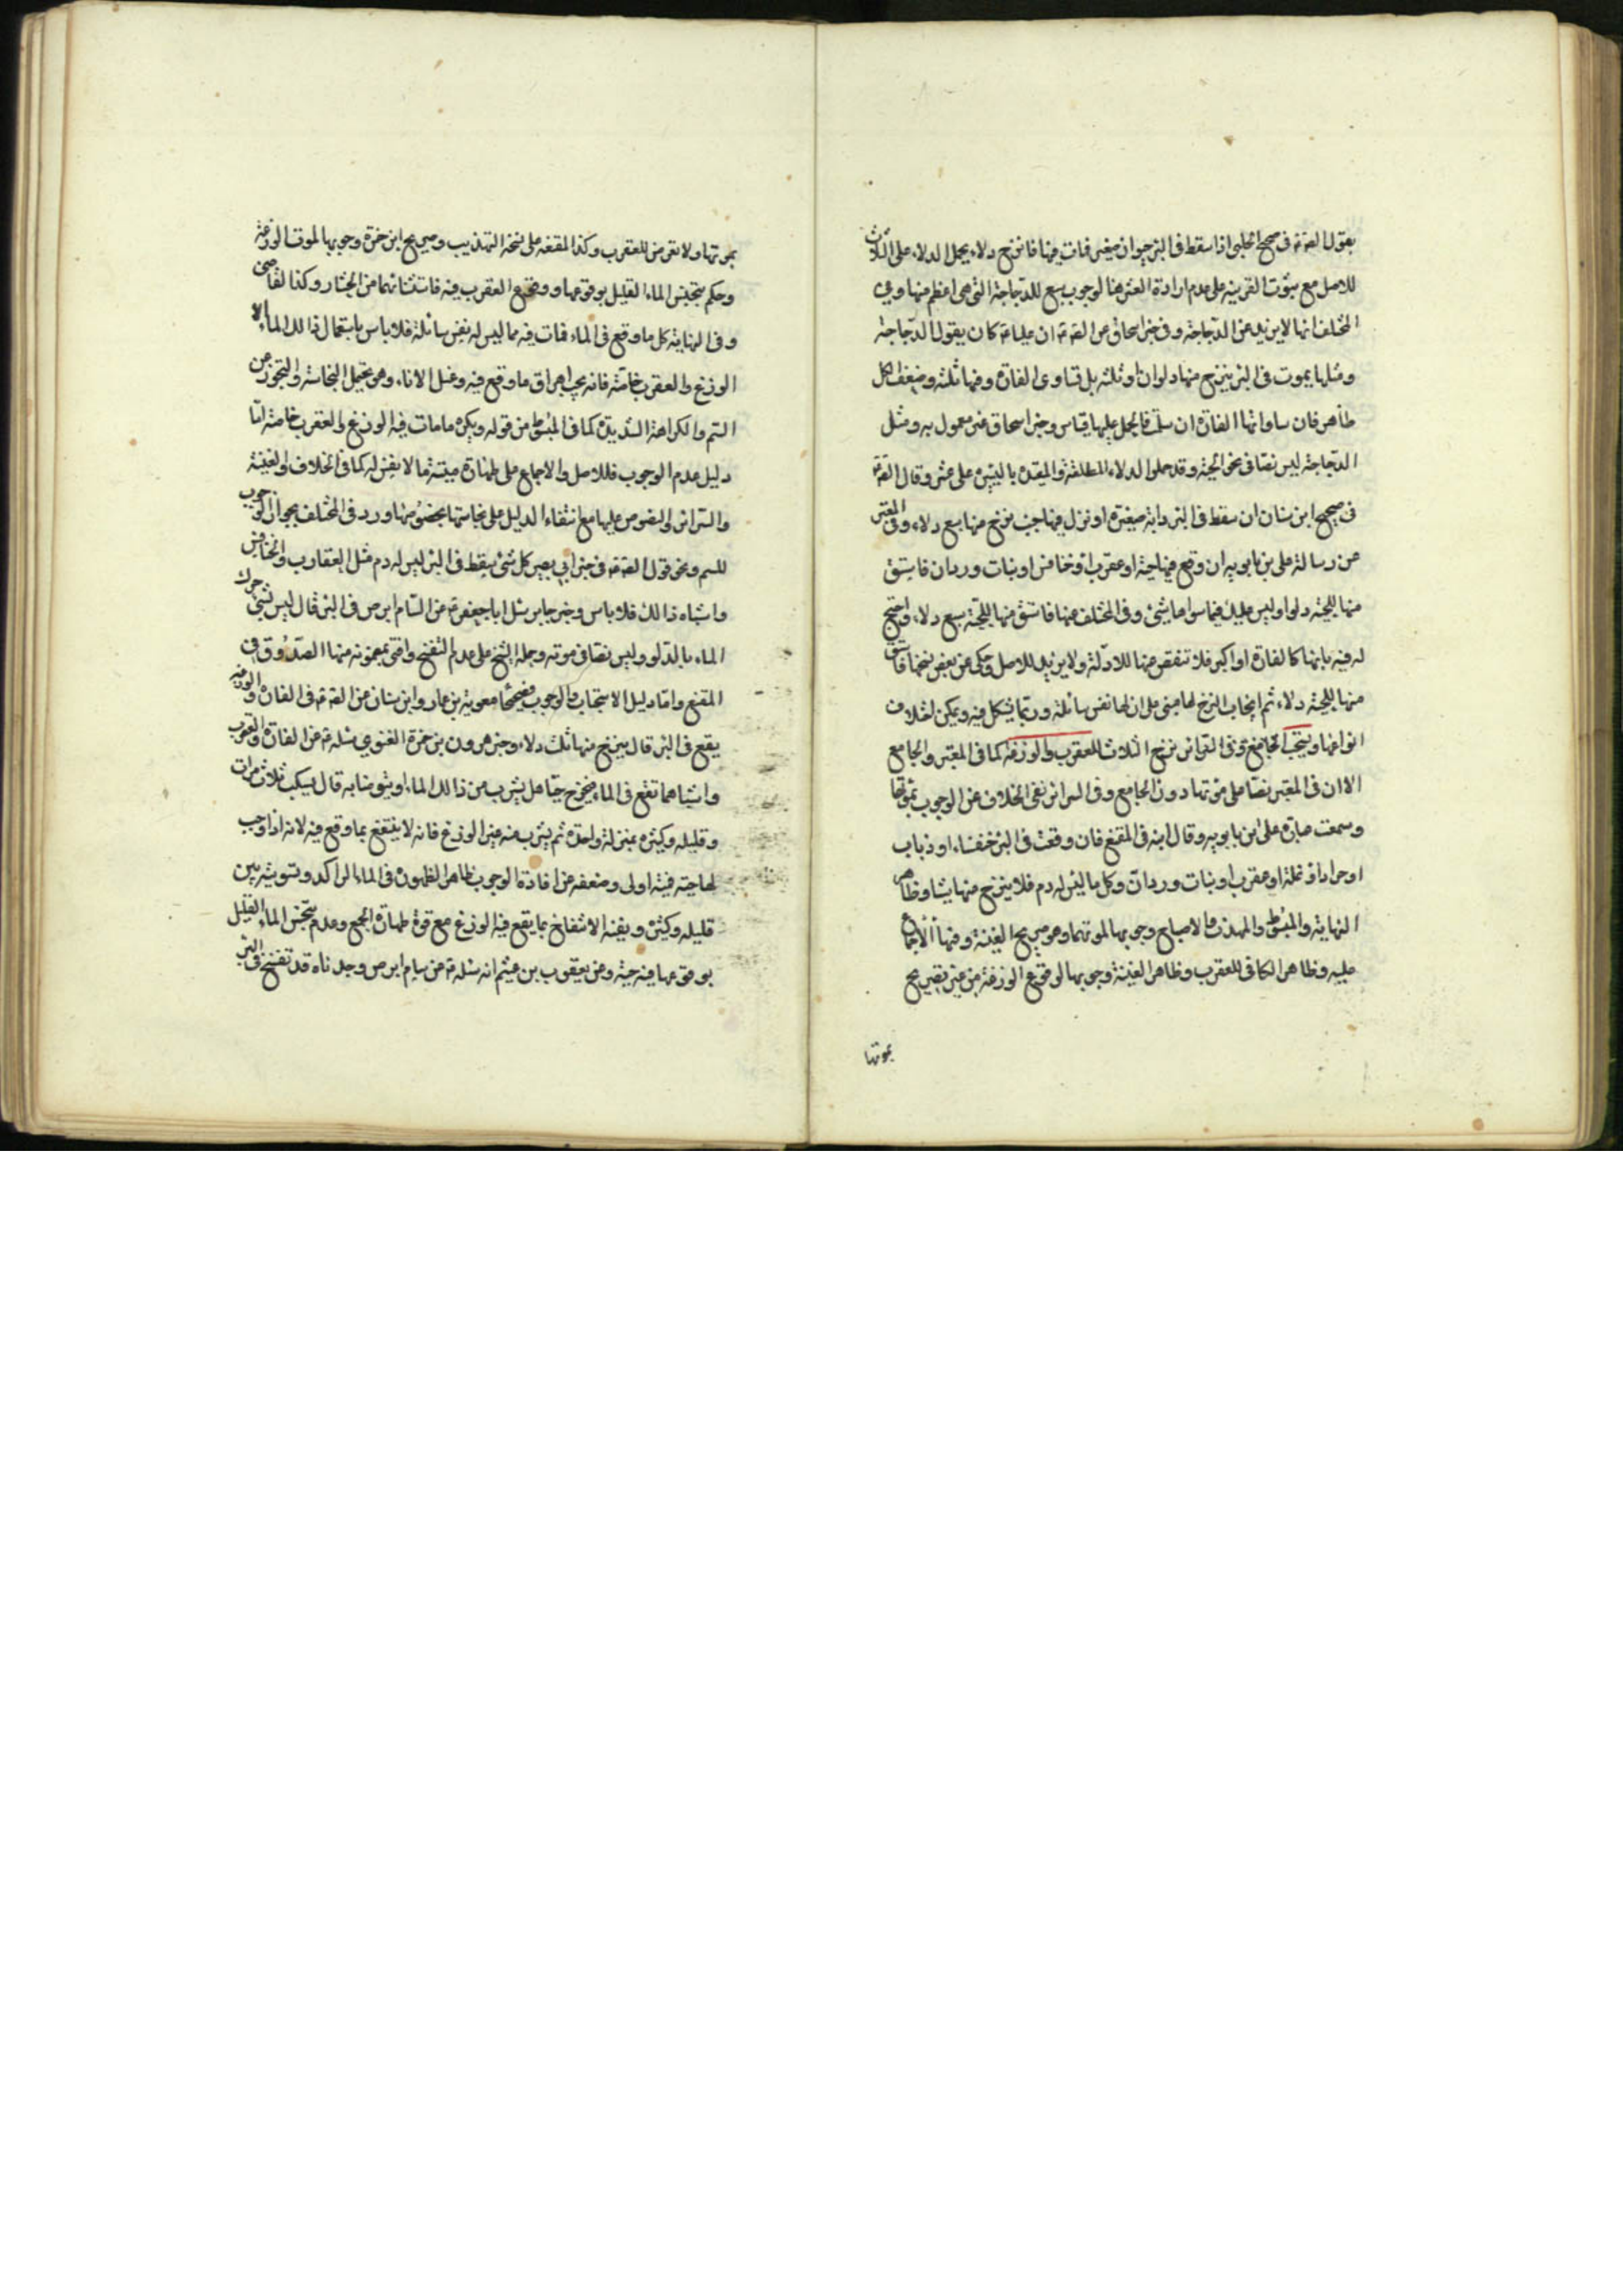 بقول الصّ ع في صحيح الحلبي اذا سقط في البئر حيوان صغير فمات فيها فانزح دلاء يحمل الدلاء على الثلاث
للاصل مع ثبوت القرينه على عدم ارادة العشر هنا لوجوب سبع للدّجاجة التي هي اعظم منها وفي
المختلف انها لا يزيد عن الدّجاجة وفي خبر اسحاق عن الصّ ع ان عليا ع كان يقول الدّجاجة
ومثلها يموت في البئر ينزح منها دلوان او ثلثه بل تساوى الفارة وفيها ثلثه وضعف الكل
ظاهر فان ساواتها الفارة ان سلّت فالحمل عليها قياس وخبر اسحاق غير معمول به ومثل
الدّجاجة ليس نصّا في نحو الحيّة وقد حملوا الدلاء المطلقة والمقيده باليسيره على عشر وقال الصّ ع
في صحيح ابن سنان ان سقط في البئر دابة صغيرة او نزل فيها جنب نزح منها سبع دلاء وفي المعتبر
عن رسالة علي بن بابويه ان وقع فيها حية او عقرب او خنافس او بنات وردان فاستق
منها للحيّة دلوا وليس عليك فيما سواها شيء وفي المختلف عنها فاستق منها للحيّة سبع دلاء واحتج
له فيه بانها كالفارة او اكبر فلا تنقص منها للاولة ولا يزيد للاصل وحكى عن بعض نسخها فاستق
منها للحيّة دلاء ثم ايجاب النزح لها مبني على ان لها نفس سائلة وربّما يشكل فيه ويمكن اختلاف
انواعها ويستحب الجامع وفي السرائر نزح الثلاث للعقرب والوزغة كما في المعتبر والجامع
الا ان في المعتبر نصّا على موتها دون الجامع وفي السرائر نفى الخلاف عن الوجوب بموتها
وسمعت عبارة علي بن بابويه وقال ابنه في المقنع فان وقعت في البئر خنفساء او ذباب
او جراد او نملة او عقرب او بنات وردان وكل ما ليس له دم فلا ينزح منها شيئا وظاهر
النهاية والمبسوط والمهذّب والاصباح وجوبها لموتهما وهو صريح الغنية وفيها الاجماع
عليه وظاهر الكافي للعقرب وظاهر الغنية وجوبها لوقوع الوزغة من غير تصريح
بموتها
بموتها ولا تعرض للعقرب وكذا المقنعه على نسخة التهذيب وصريح ابن حمزة وجوبها لموت الوزغة
وحكم بتنجيس الماء القليل بوقوعها ووقوع العقرب فيه فاستثنائهما من الحشار وكذا القاضي
وفي النهاية كل ما وقع في الماء فمات فيه مما ليس له نفس سائلة فلا باس باستعمال ذالك الماء الا
الوزغ والعقرب خاصّة فانه يجب اهراق ما وقع فيه وغسل الاناء وهو يحتمل النجاسة والتحرز عن
السّم والكراهة الشديدة كما في المبسوط من قوله ويكره ما مات فيه الوزغ والعقرب خاصّة امّا
دليل عدم الوجوب فللاصل والاجماع على طهارة ميتة ما لا نفس له كما في الخلاف والغنية
والسرائر والنصوص عليها مع انتفاء الدليل على نجاستها بخصوصها ورد في المختلف بجواز الوجوب
للسم ونحو قول الصّ ع في خبر ابي بصير كل شيء يسقط في البئر ليس له دم مثل العقارب والخنافس
واشباه ذالك فلا باس وخبر جابر سئل ابا جعفر ع عن السّام ابرص في البئر قال ليس بشيء حرك
الماء بالدّلو وليس نصّا في موته وحمله الشيخ على عدم التفسّخ وافتى بمضمونه منها الصّدوق في
المقنع وامّا دليل الاستحباب والوجوب فصحيحا معوية بن عمار وابن سنان عن الصّ ع في الفارة والوزغة
يقع في البئر قال ينزح منها ثلث دلاء وخبر هرون بن حمزة الغنوي سئله ع عن الفارة والعقرب
واشباههما تقع في الماء فيخرج حيّا هل يشرب من ذالك الماء او يتوضا به قال يسكب ثلاث مرات
وقليله وكثيره بمنزلة واحدة ثم يشرب منه غير الوزغ فانه لا ينتفع بما وقع فيه لانه اذا وجب
لحاجته فميتة اولى وضعفه عن افادة الوجوب ظاهر الظهوره في الماء الراكد وتسويته بين
قليله وكثيره ونفيه الانتفاع بما يقع فيه الوزغ مع قوة طهارة الجمع وعدم تنجس الماء القليل
بوقوعها فيه حيّة وعن يعقوب بن عيثم انه سئله ع عن سام ابرص وجدناه قد تفسخ في البئر